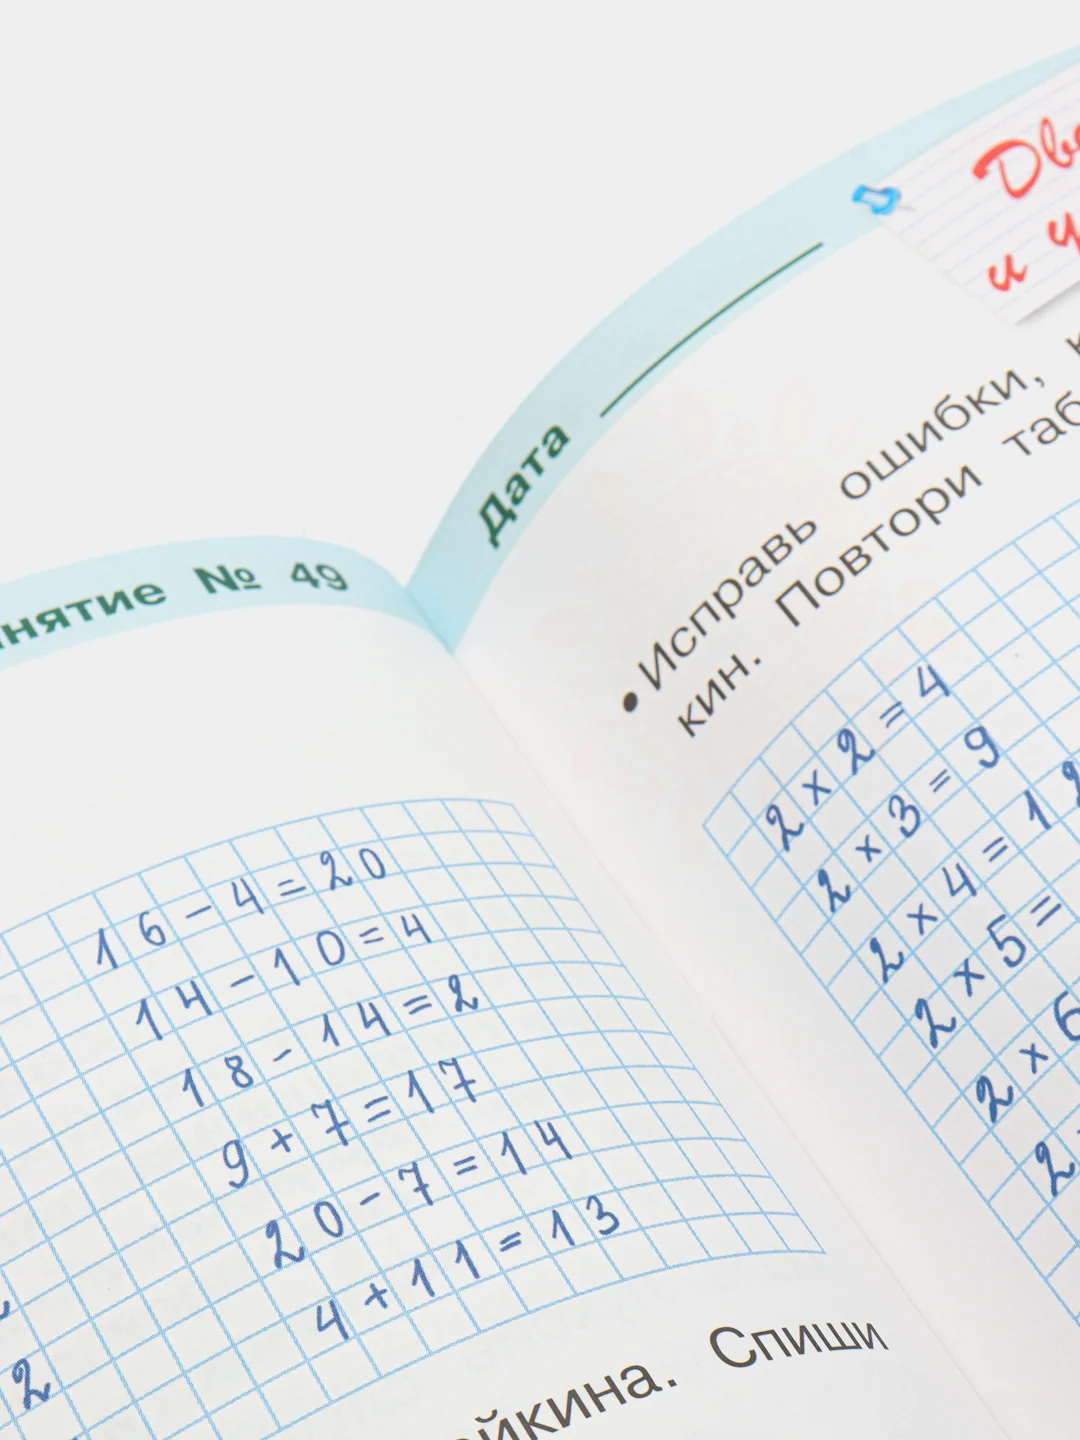 № 49
16 - 4 = 20
14 - 10 = 4
18 - 14 = 2
9 + 7 = 17
20 - 7 = 14
4 + 11 = 13
2
Спиши
Дата
и
• Исправь ошибки,
кин. Повтори
2 × 2 = 4
2 × 3 = 9
2 × 4 = 12
2 × 5 =
2 × 6
2